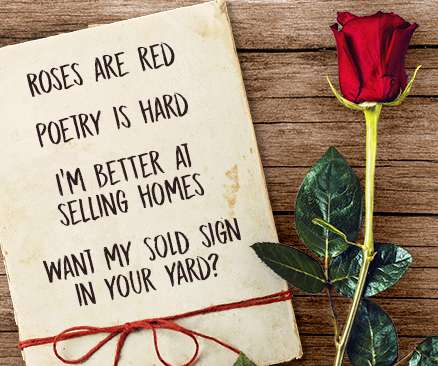 ROSES ARE RED
POETRY IS HARD
I'M BETTER AT
SELLING HOMES
WANT MY SOLD SIGN
IN YOUR YARD?